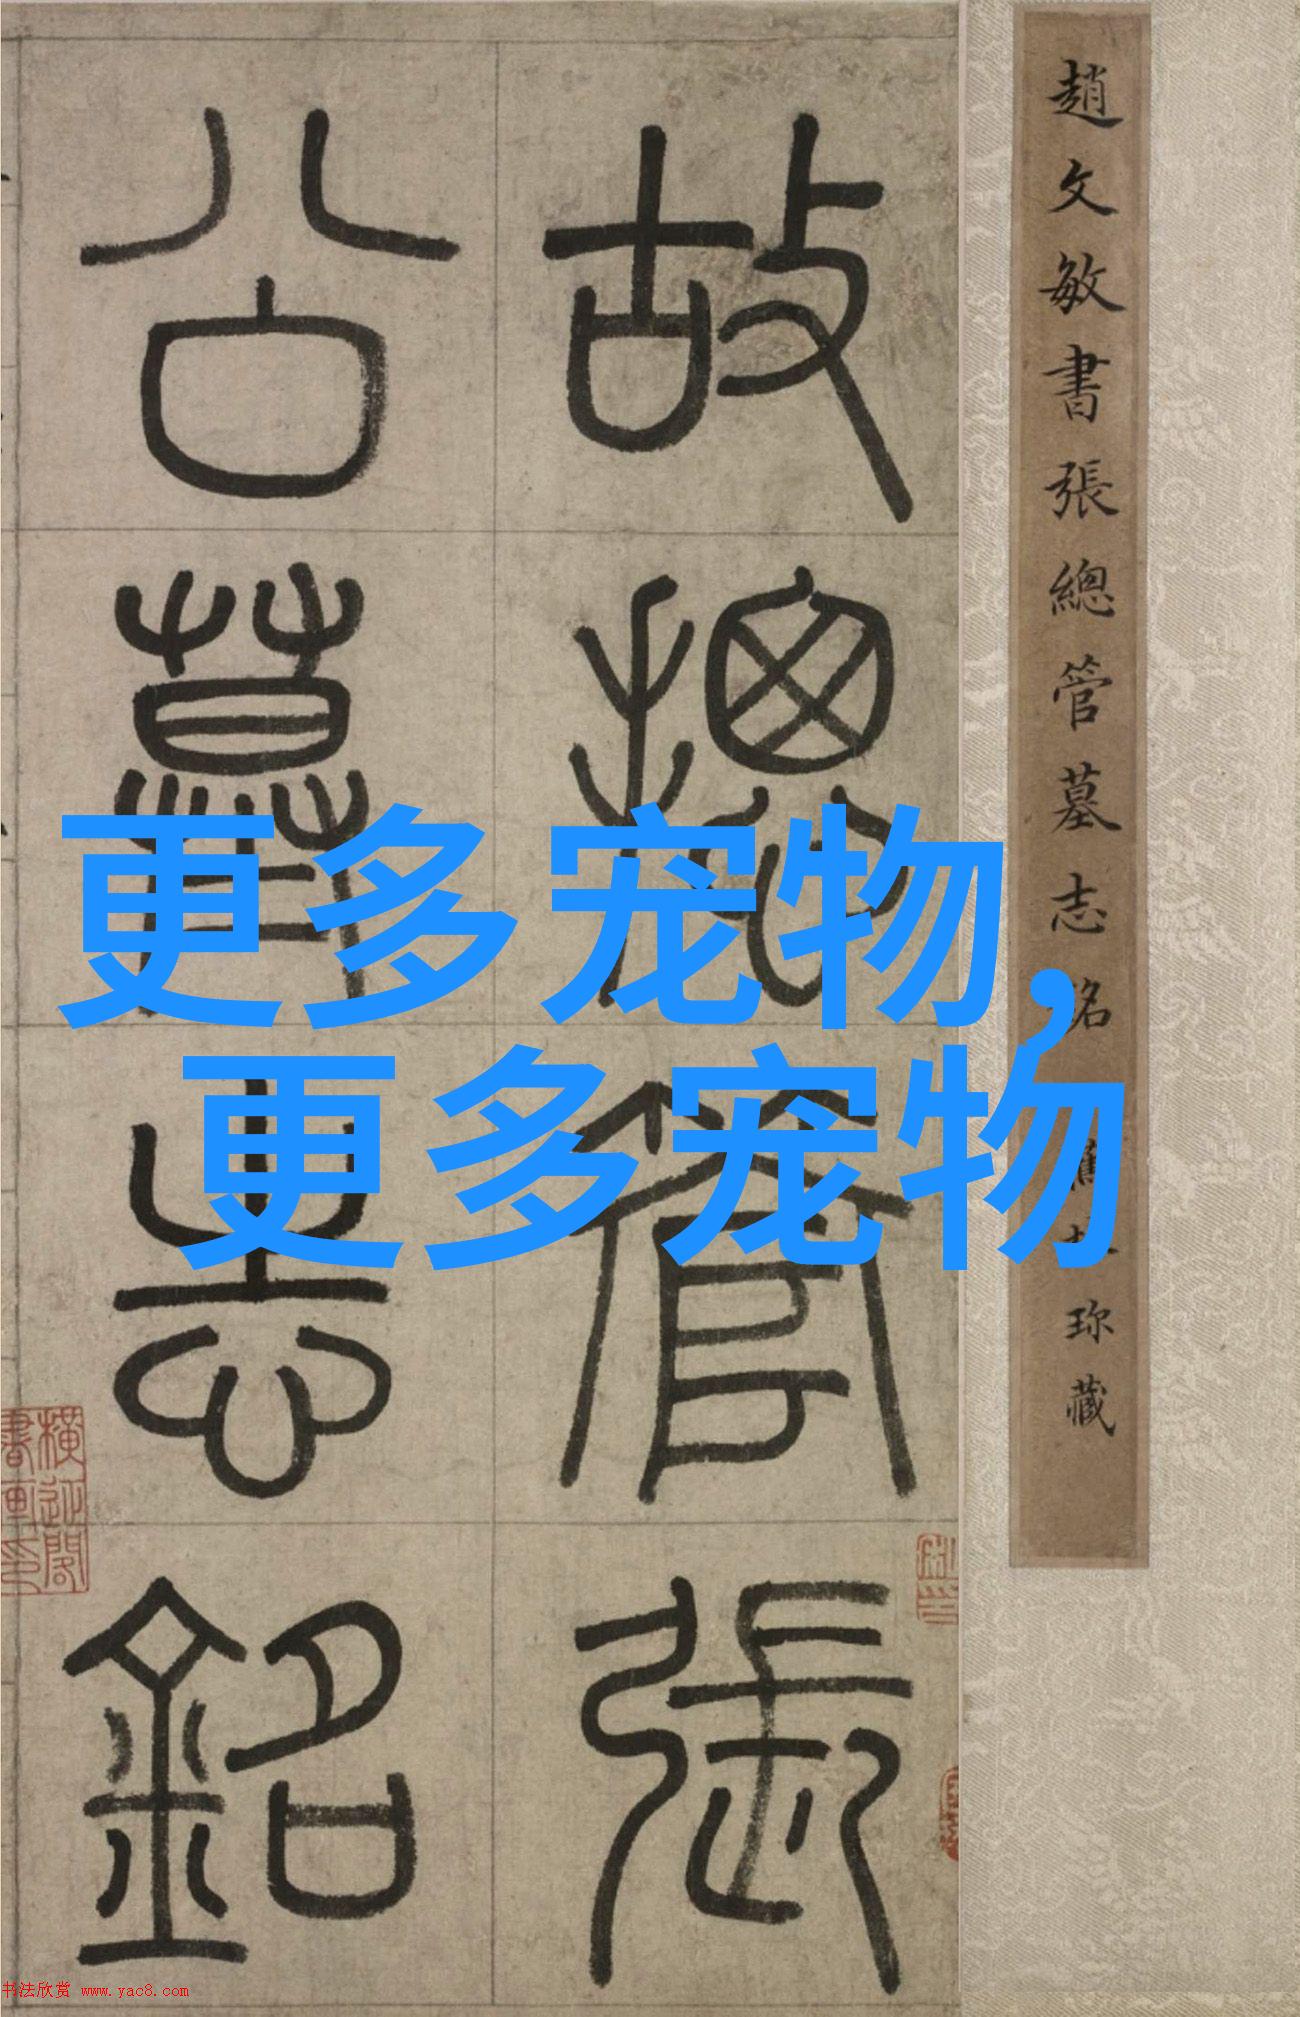 趙文敏書張總管墓志銘
珍藏
故總管張
公墓志銘
更多宠物,
更多宠物
横
書畫
书法欣赏 www.yac8.com